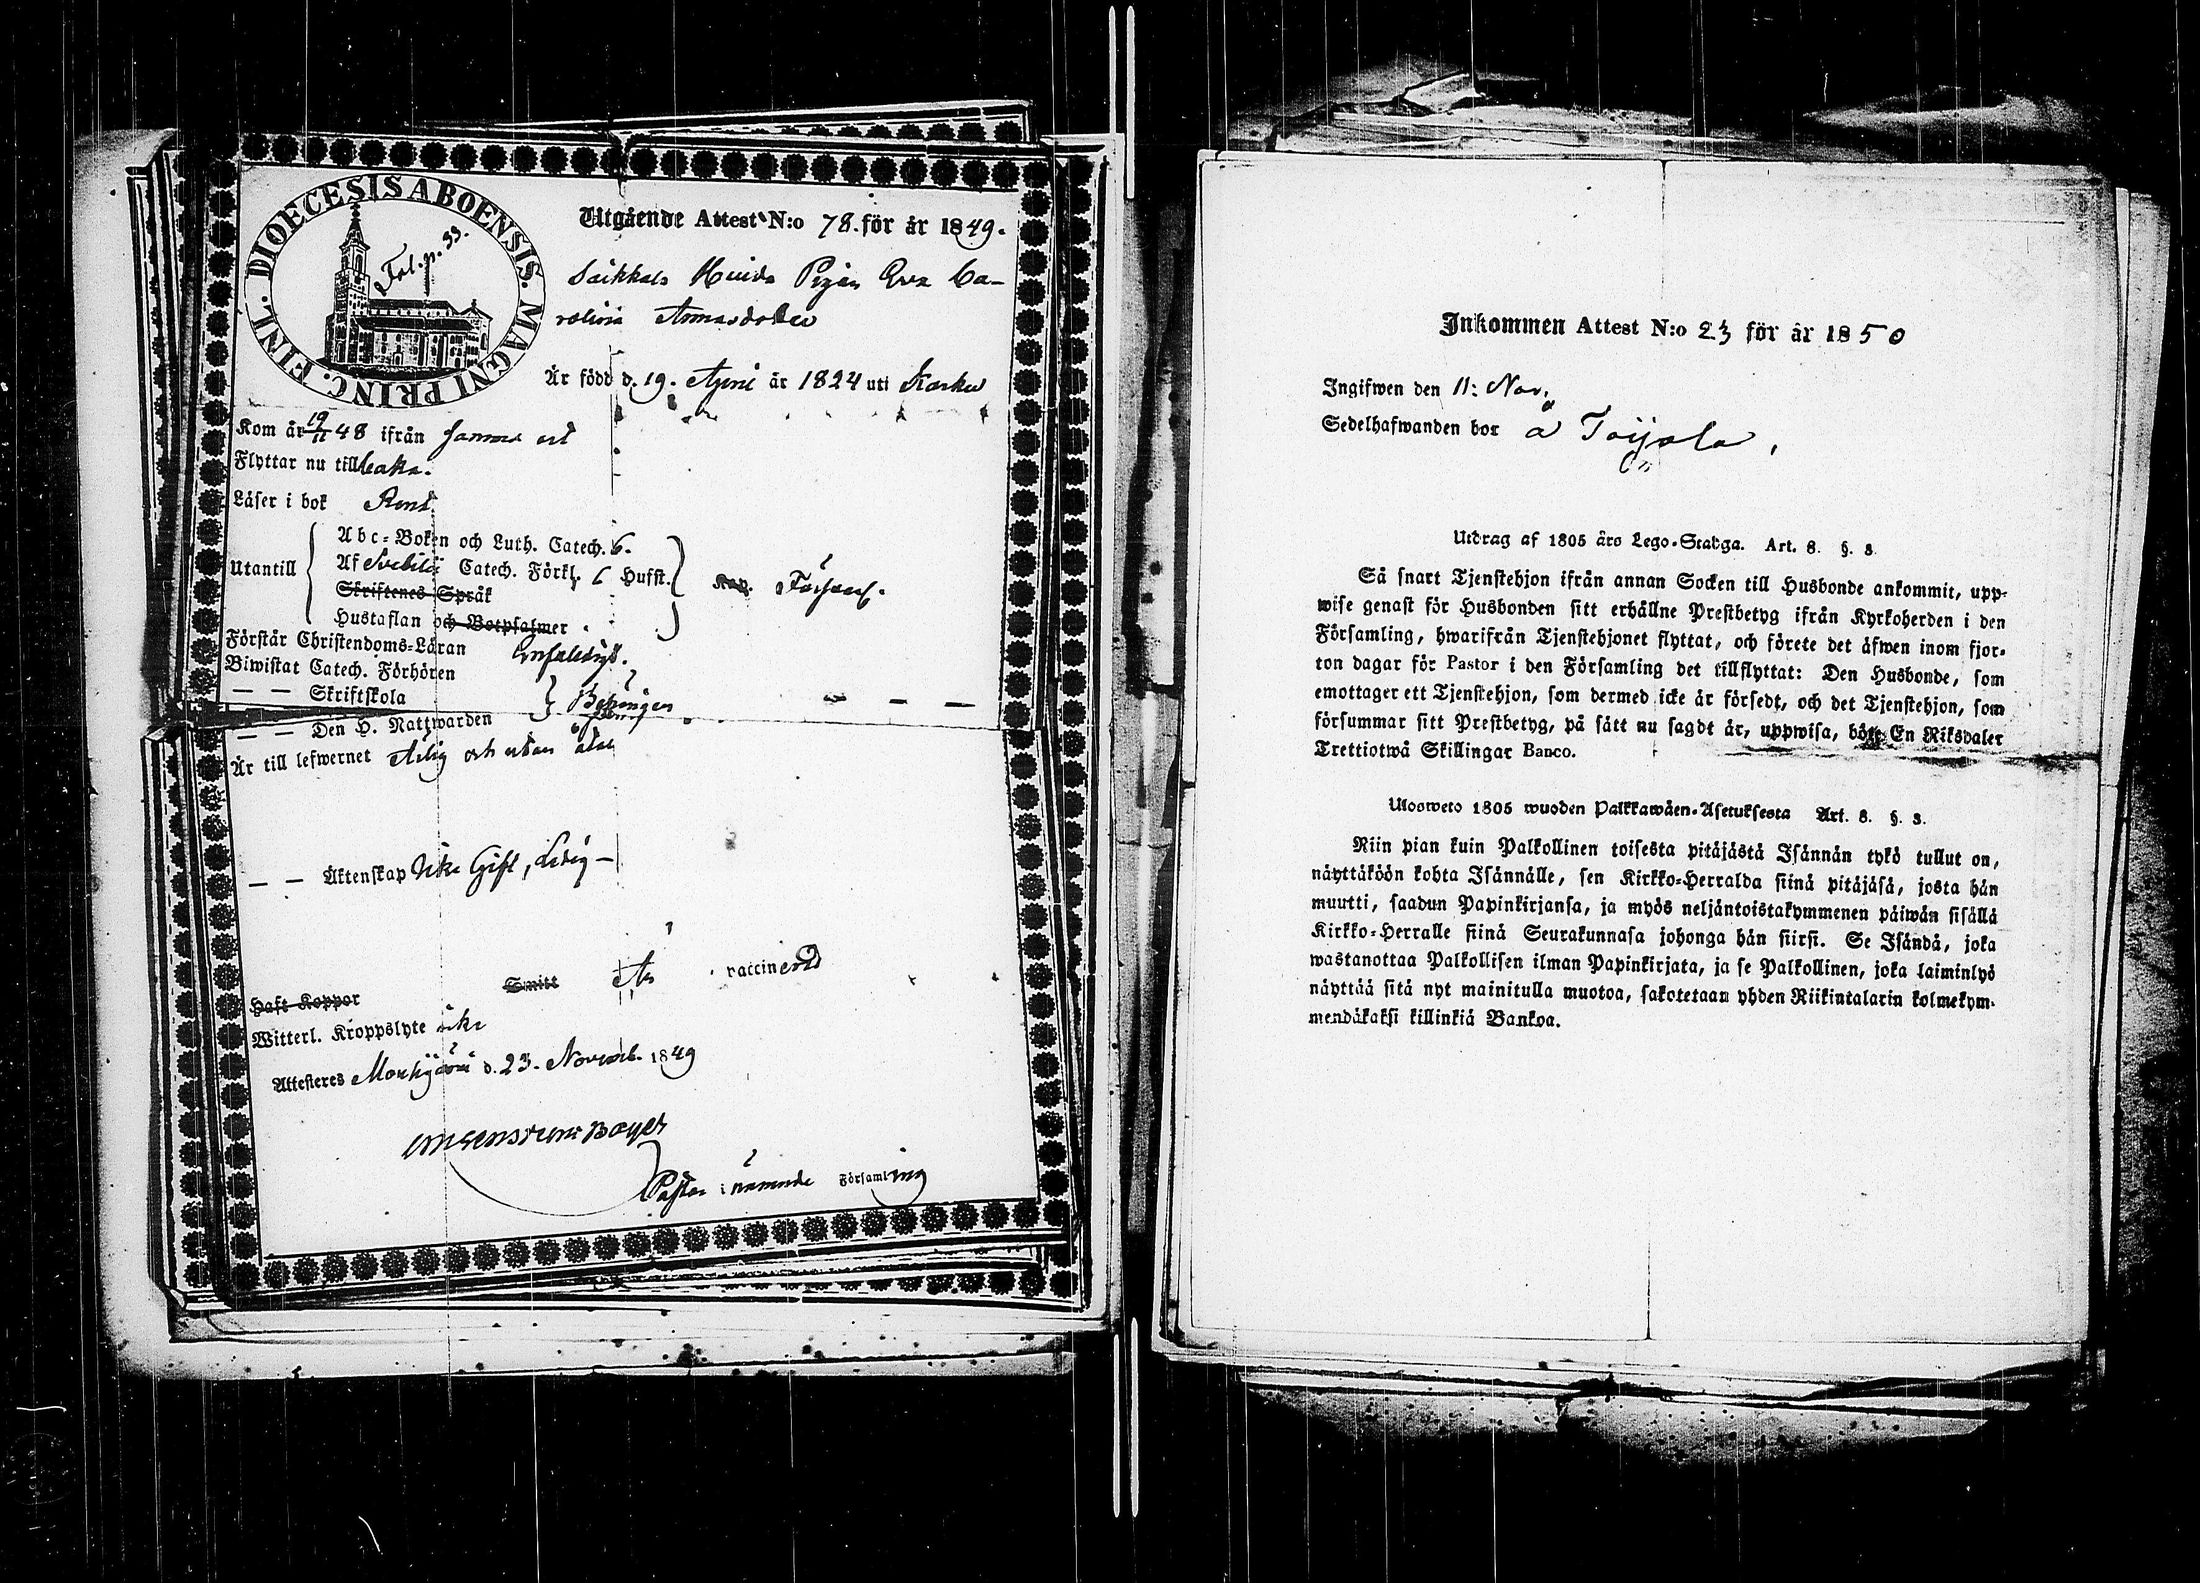 DIOECESIS ABOENSIS. MAGNI PRINC. FINL.
Fol. p. 33.
Utgående Attest N:o 78. för år 1849.
Huida Pigan Eva Ca-
rolina
Är född d. 19. April år 1824 uti Karku
Kom år 19/11 48 ifrån samma ort
Flyttar nu tillbaka.
Läser i bok Rent
Utantill
Abc-Boken och Luth. Catech. 6.
Af Svebilii Catech. Förkl. 6 Hufst.
Skriftenes Språk
Hustaflan och Botpsalmer
Förstår Christendoms-Läran Enfaldigt.
Biwistat Catech. Förhören
— — Skriftskola
— — Den H. Nattwarden
Behörigen
Är till lefwernet ärlig och utan
— — Äktenskap Icke Gift, Ledig —
Haft Koppor Smitt Är vaccinerad
Witterl. Kroppslyte icke
Attesteres Mouhijärvi d. 23. Novemb. 1849
Pastor i nämnde Församling
Inkommen Attest N:o 23 för år 1850
Ingifwen den 11: Nov.
Sedelhafwanden bor å Toijola
Utdrag af 1805 års Lego-Stadga. Art. 8. §. 3.
Så snart Tjenstehjon ifrån annan Socken till Husbonde ankommit, upp-
wise genast för Husbonden sitt erhållne Prestbetyg ifrån Kyrkoherden i den
Församling, hwarifrån Tjenstehjonet flyttat, och förete det äfwen inom fjor-
ton dagar för Pastor i den Församling det tillflyttat: Den Husbonde, som
emottager ett Tjenstehjon, som dermed icke är försedt, och det Tjenstehjon, som
försummar sitt Prestbetyg, på sätt nu sagdt är, uppwisa, böte En Riksdaler
Trettiotwå Skillingar Banco.
Ulosweto 1805 wuoden Palkkawäen-Asetuksesta Art. 8. §. 3.
Niin pian kuin Palkollinen toisesta pitäjästä Isännän tykö tullut on,
näyttäköön kohta Isännälle, sen Kirkko-Herralda siinä pitäjäsä, josta hän
muutti, saadun Papinkirjansa, ja myös neljäntoistakymmenen päiwän sisällä
Kirkko-Herralle siinä Seurakunnasa johonga hän siirsi. Se Isändä, joka
wastanottaa Palkollisen ilman Papinkirjata, ja se Palkollinen, joka laiminlyö
näyttää sitä nyt mainitulla muotoa, sakotetaan yhden Riikintalarin kolmekym-
mendäkaksi killinkiä Bankoa.